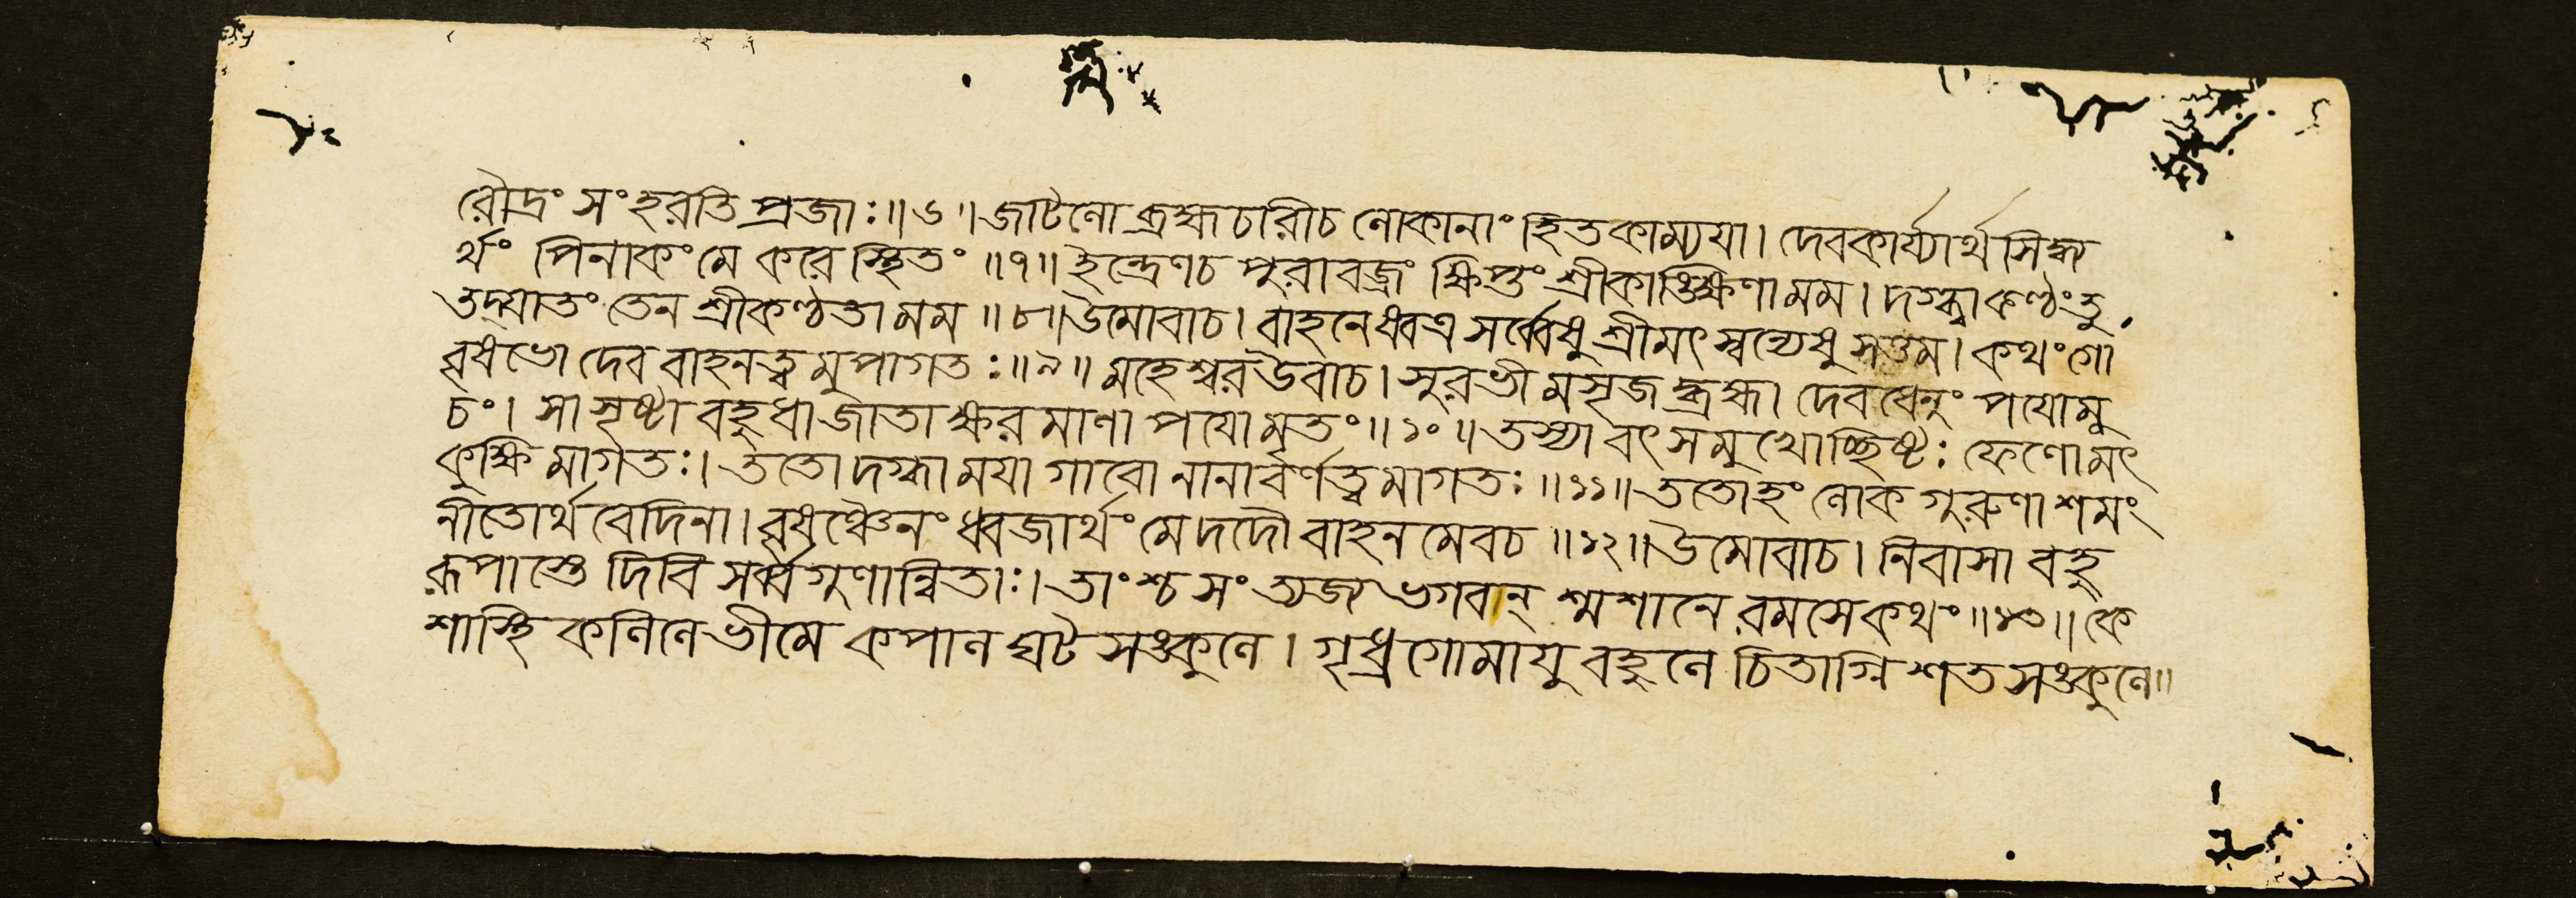 রৌদ্রং সংহরতি প্রজাঃ॥৬॥জটিলো ব্রহ্মচারীচ লোকানাং হিতকাম্যযা। দেবকার্য্যার্থসিদ্ধ্য
র্থং পিনাকং মে করে স্থিতং ॥৭॥ ইন্দ্রেণচ পুরাবজ্রং ক্ষিপ্তং শ্রীকাঙ্ক্ষিণামম। দগ্ধ্বাকণ্ঠংতু
তদ্যাতং তেন শ্রীকণ্ঠতা মম ॥৮॥উমোবাচ। বাহনেষ্বত্র সর্ব্বেষু শ্রীমৎস্বন্যেষু সত্তম। কথংগো
বৃষভো দেব বাহনত্ব মুপাগতঃ॥৯॥ মহেশ্বর উবাচ। সুরভী মসৃজ দ্ব্রহ্মা দেবধেনুং পযোমু
চং। সা সৃষ্টা বহুধা জাতা ক্ষরমাণা পযোমৃতং॥১০॥ তস্যা বৎসমুখোচ্ছিষ্টঃ ফেণোমৎ
কুক্ষি মাগতঃ। ততো দগ্ধা মযা গাবো নানাবর্ণত্ব মাগতঃ ॥১১॥ ততোহং লোক গুরুণা শমং
নীতোর্থ বেদিনা। বৃষঞ্চৈনং ধ্বজার্থং মে দদৌ বাহন মেবচ ॥১২॥উমোবাচ। নিবাসা বহু
রূপাস্তে দিবি সর্ব্বগুণান্বিতাঃ। তাংশ্চ সংত্যজ্য ভগবান্ শ্মশানে রমসে কথং ॥১৩॥ কে
শাস্থি কলিলে ভীমে কপাল ঘট সঙ্কুলে। গৃধ্রগোমাযু বহুলে চিতাগ্নি শত সঙ্কুলে॥